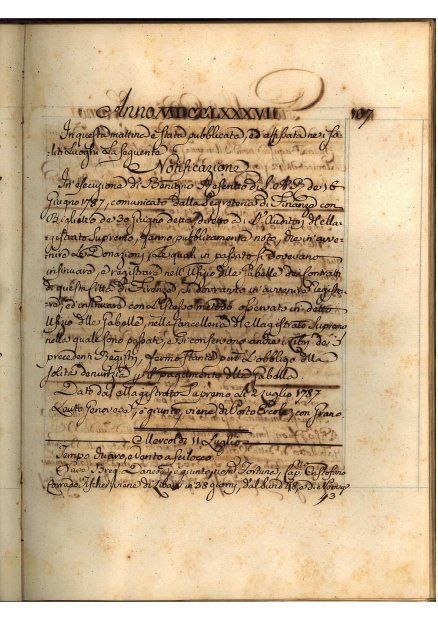 Anno MDCCLXXXVII 107
In questa mattina è stata pubblicata, ed affissata ne i so-
liti Luoghi La seguente
Notificazione
In esecuzione di Benigno Rescritto di S.A.R. de 16
Giugno 1787, comunicato dalla Segreteria di Finanze con
Biglietto de 30 Giugno detto diretto a di Auditori del Ma-
gistrato Supremo, fanno pubblicamente noto, che in avve-
nire Le Donazioni, Le quali in passato si dovevano
insinuare, e registrare nell'Ufizio delle Gabelle de Contratti
di questa Città di Firenze, si dovranno in avvenire registra-
re, e continuare con L'istesso metodo osservato in detto
Ufizio delle Gabelle, nella Cancelleria del Magistrato Supremo
nella quale sono passati, e si conservano anche i Libri dei
precedenti Registri, fermo stante però L'obbligo della
solita denunzia, e il pagamento della Gabella
Dato dal Magistrato Supremo Li 2 Luglio 1787
Leuto Genovese giunto, viene di Porto Ercole con Grano
Mercoldì 11 Luglio
Tempo chiaro, e Vento a Scilocco
Nave Danese giunta nom. Fortuna, Cap. Cristofano
Corrado viene di in 38 giorni, dal band
43